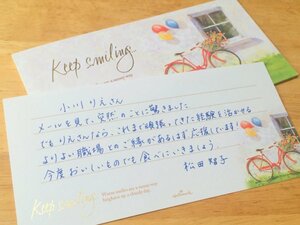 Keep smiling
小川りえさん
メールを見て、突然のことに驚きました
でもりえさんなら、これまで頑張ってきた経験を活かせる
よりよい職場とのご縁があるはず 応援しています!
今度おいしいものでも食べにいきましょう
松田 智子
Keep smiling
Warm smiles are a sunny ray,
brighten up a cloudy day.